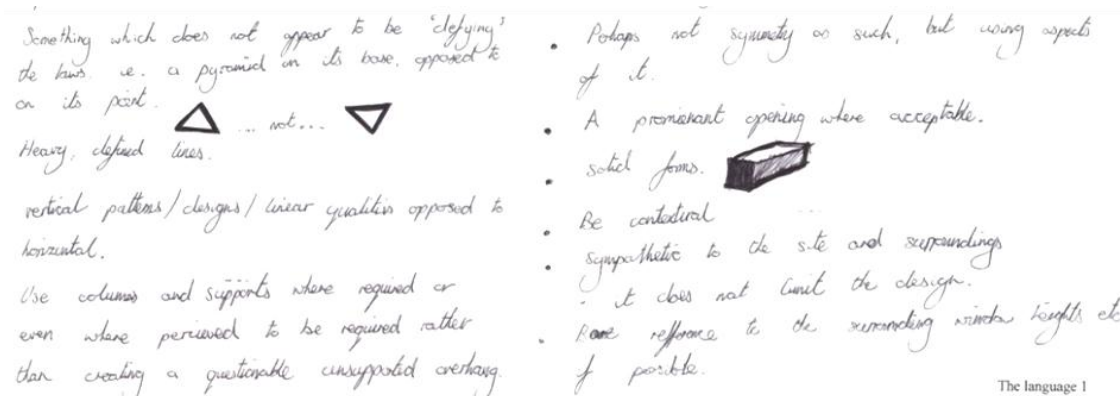 Something which does not appear to be 'defying'
the laws. i.e. a pyramid on its base, opposed to
on its point.
... not...
Heavy, defined lines.
vertical patterns/designs/linear qualities opposed to
horizontal.
Use columns and supports where required or
even where percieved to be required rather
than creating a questionable unsupported overhang.
• Pehaps not symmetry as such, but using aspects
of it.
• A promienant opening where acceptable.
• solid forms.
• Be contextural
• sympathetic to the site and surroundings
it does not limit the design.
• refference to the surrounding window heights etc
if possible.
The language 1